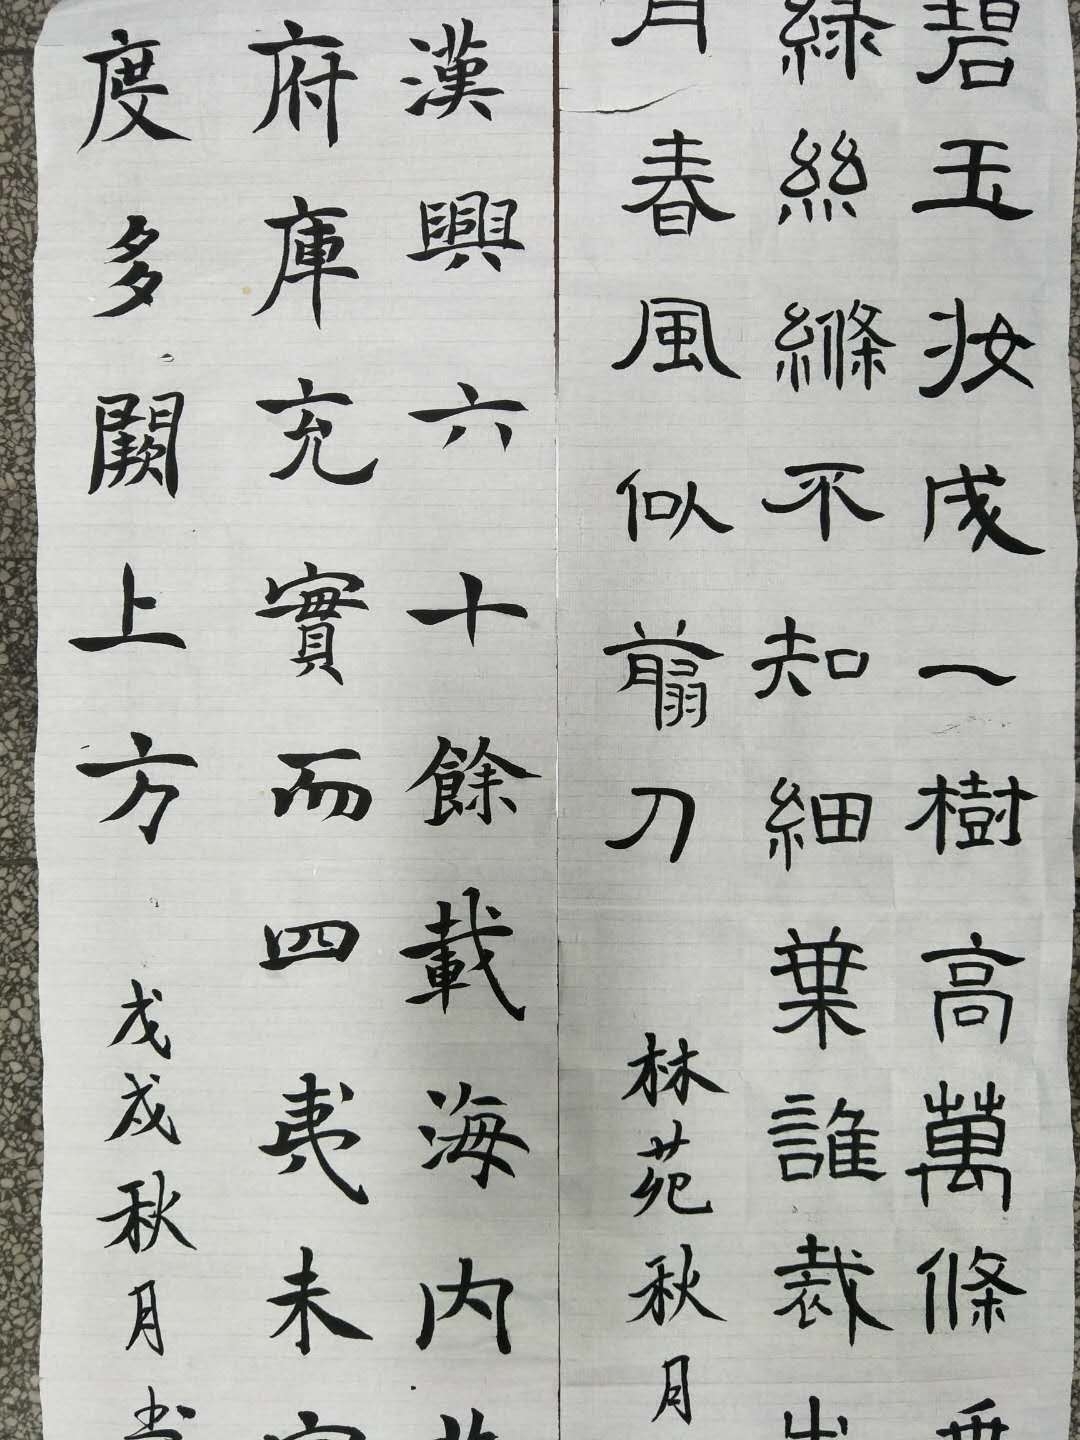 碧玉妝成一樹高萬條垂
綠絲縧不知細葉誰裁出
月春風似翦刀
林苑秋月
漢興六十餘載海內
府庫充實而四夷未
度多闕上方
戊戌秋月書